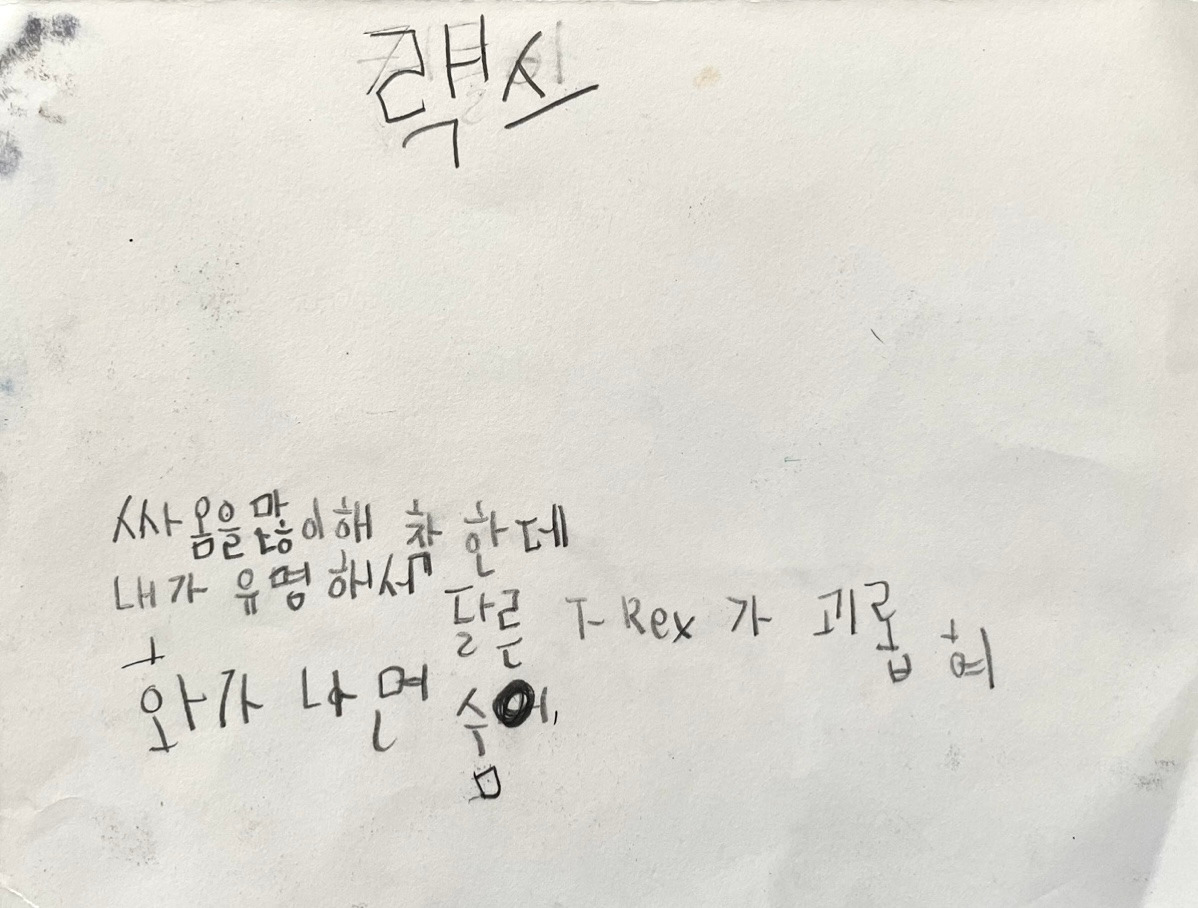 략스
싸움을많이해 참 한데
내가 유명해서 달른 T-Rex 가 괴롭혀
화가 나면 숨어,